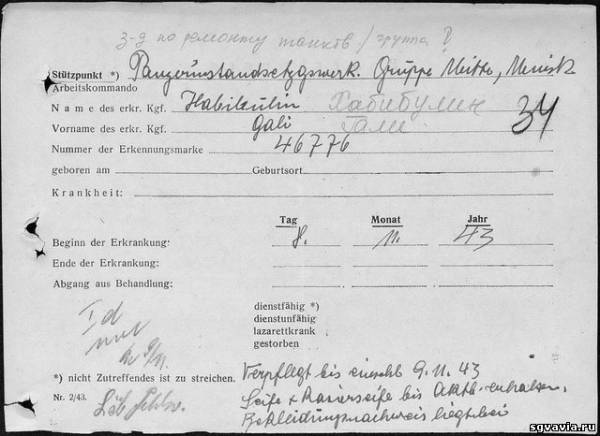 з-д по ремонту танков / группа ?
Stützpunkt *) Panzerinstandsetzgswerk. Gruppe Mitte, Minsk
Arbeitskommando
Name des erkr. Kgf. Habibulin Хабибулин
Vorname des erkr. Kgf. Gali Гали
34
Nummer der Erkennungsmarke 46776
geboren am Geburtsort
Krankheit:
Tag Monat Jahr
Beginn der Erkrankung: 8. 11. 43
Ende der Erkrankung:
Abgang aus Behandlung:
dienstfähig *)
dienstunfähig
lazarettkrank
gestorben
*) nicht Zutreffendes ist zu streichen.
Nr. 2/43.
Verpflegt bis einschl 9.11.43
Seife + Rasierseife bis erhalten.
Bekleidungsnachweis liegt bei
sgvavia.ru